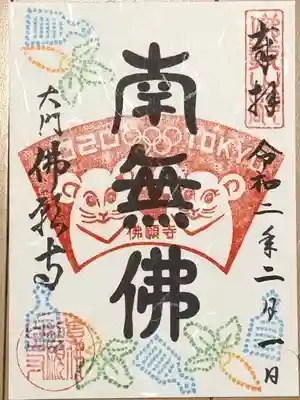 奉拝
令和二年二月一日
南無佛
2020 TOKYO
佛願寺
大門 佛願寺